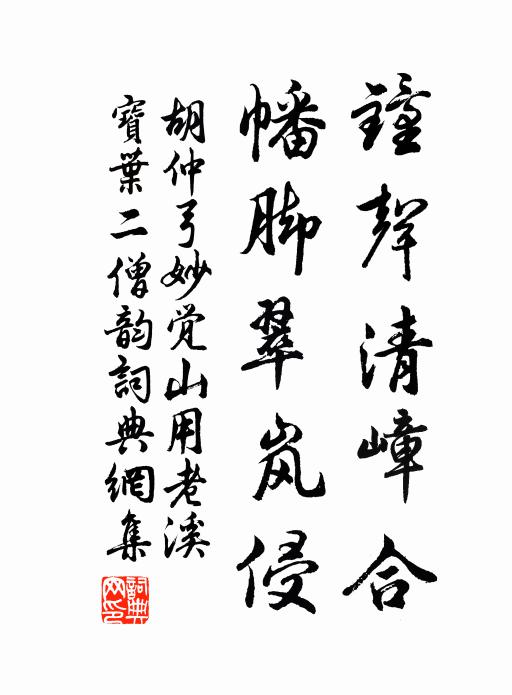 鐘聲清嶂合
幡脚翠岚侵
胡仲弓妙觉山用老溪
寶葉二僧韵詞典網集
詞典网印